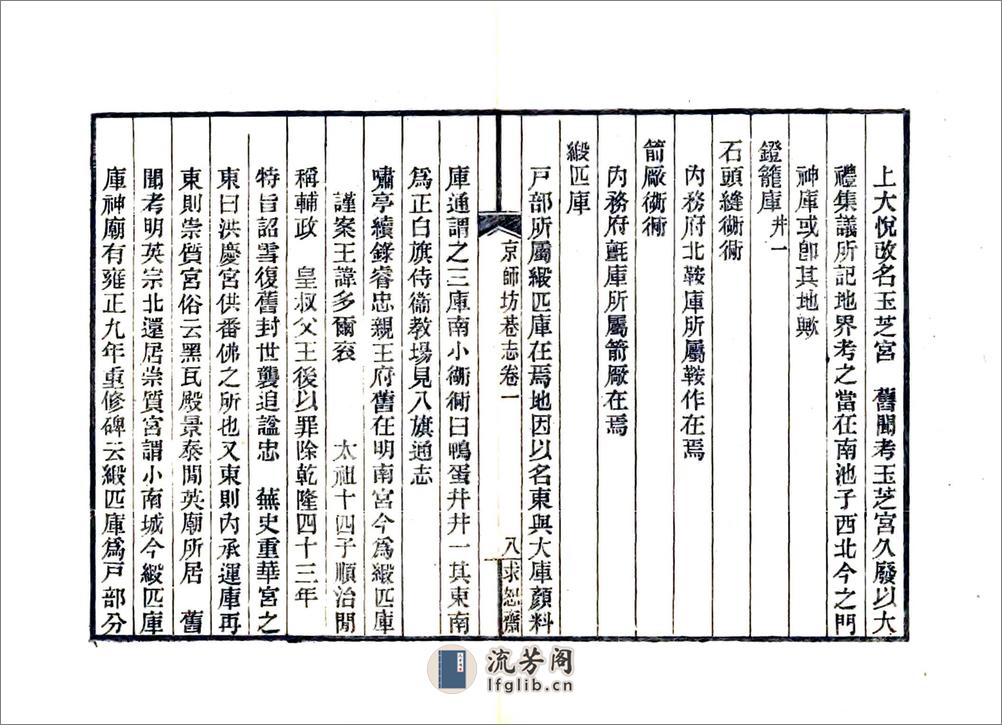 上大悅改名玉芝宮　舊聞考玉芝宮久廢以大
禮集議所記地界考之當在南池子西北今之門
神庫或卽其地歟
鐙籠庫井一
石頭縫衚衕
內務府北鞍庫所屬鞍作在焉
箭厰衚衕
內務府氈庫所屬箭厰在焉
緞匹庫
戸部所屬緞匹庫在焉地因以名東與大庫顏料
京師坊巷志卷一
八
求恕齋
庫通謂之三庫南小衚衕曰鴨蛋井井一其東南
為正白旗侍衞教場見八旗通志
嘯亭續錄睿忠親王府舊在明南宮今為緞匹庫
謹案王諱多爾袞　太祖十四子順治閒
稱輔政　皇叔父王後以罪除乾隆四十三年
特旨詔雪復舊封世襲追諡忠　蕪史重華宮之
東曰洪慶宮供番佛之所也又東則內承運庫再
東則崇質宮俗云黑瓦殿景泰閒英廟所居　舊
聞考明英宗北還居崇質宮謂小南城今緞匹庫
庫神廟有雍正九年重修碑云緞匹庫為戸部分
流芳阁
lfglib.cn